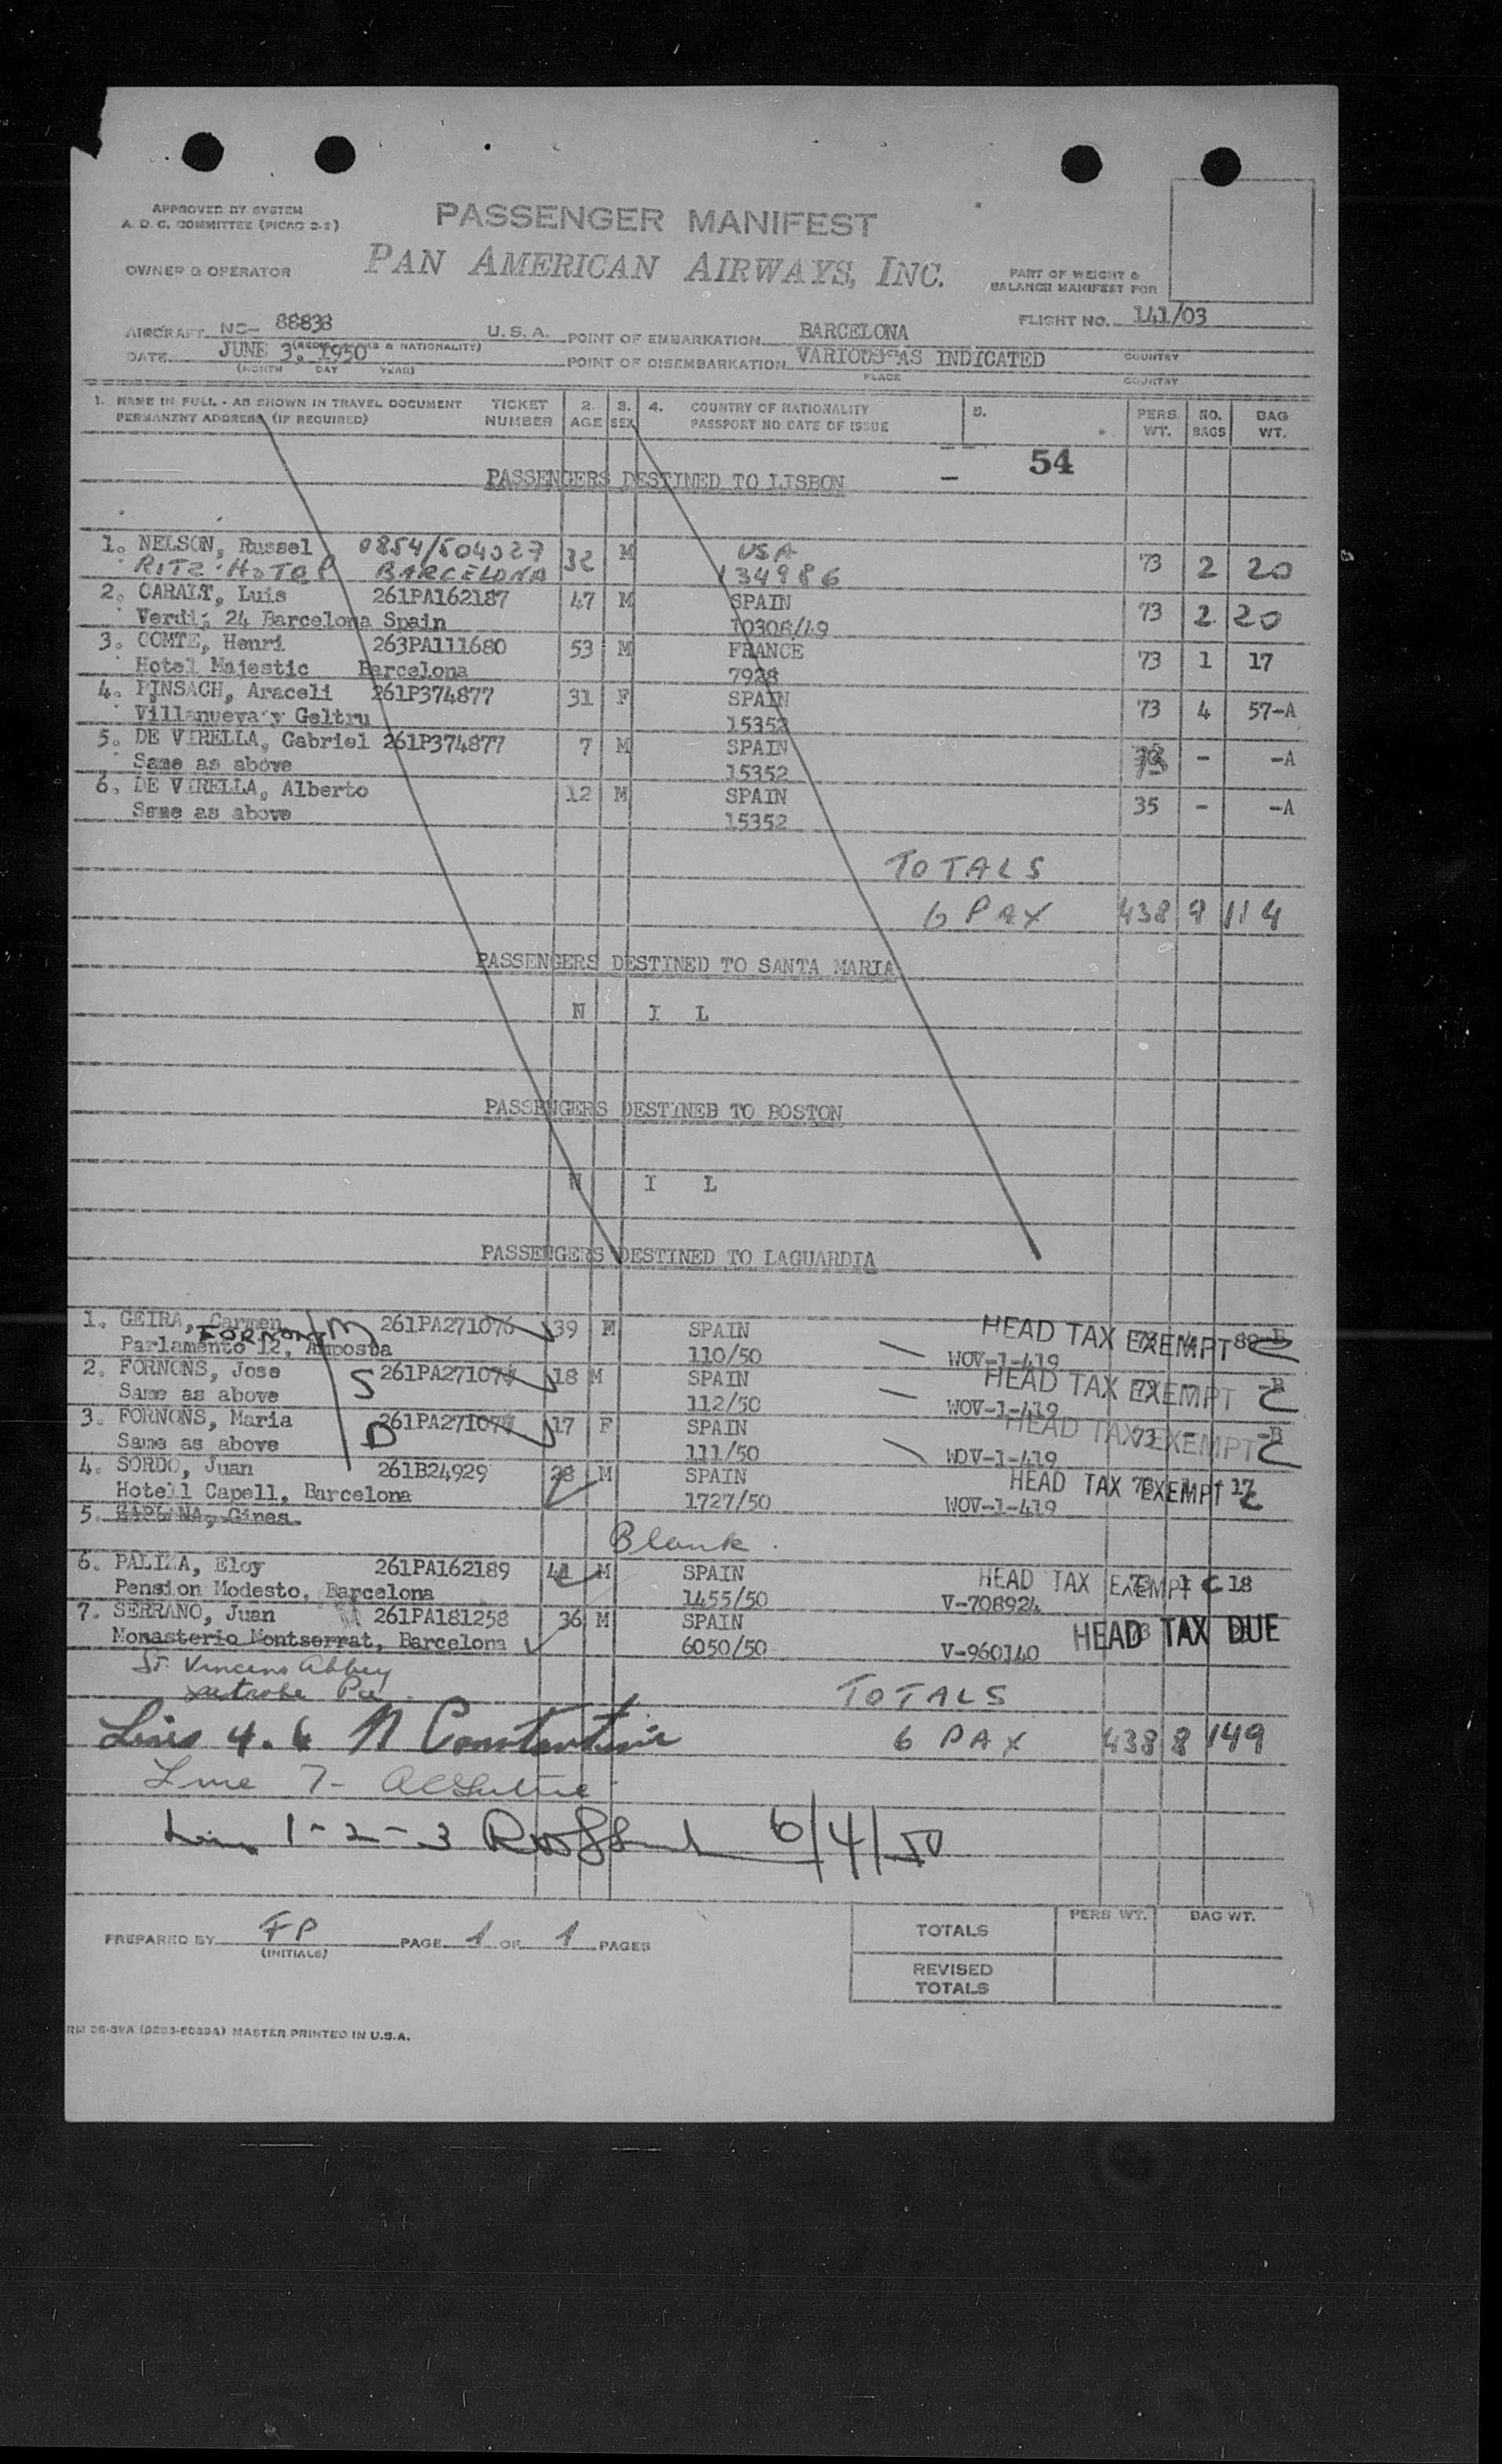 APPROVED BY SYSTEM
A. D. C. COMMITTEE (PICAO 2-2)
PASSENGER MANIFEST
OWNER & OPERATOR
PAN AMERICAN AIRWAYS, INC.
PART OF WEIGHT &
BALANCE MANIFEST FOR
AIRCRAFT NC- 88838 U.S.A. POINT OF EMBARKATION BARCELONA FLIGHT NO. 141/03
DATE JUNE 3, 1950 & NATIONALITY) POINT OF DISEMBARKATION VARIOUS AS INDICATED COUNTRY
(MONTH DAY YEAR) PLACE COUNTRY
1. NAME IN FULL - AS SHOWN IN TRAVEL DOCUMENT TICKET 2. 3. 4. COUNTRY OF NATIONALITY 5. PERS. NO. BAG
PERMANENT ADDRESS (IF REQUIRED) NUMBER AGE SEX PASSPORT NO DATE OF ISSUE WT. BAGS WT.
54
PASSENGERS DESTINED TO LISBON
1. NELSON, Russel 0854/504027 32 M USA 73 2 20
RITZ HOTEL BARCELONA 134986
2. CARALT, Luis 261PA162187 47 M SPAIN 73 2 20
Verdi, 24 Barcelona Spain 10308/49
3. COMTE, Henri 263PA111680 53 M FRANCE 73 1 17
Hotel Majestic Barcelona 7928
4. PINSACH, Araceli 261P374877 31 F SPAIN 73 4 57-A
Villanueva y Geltru 15352
5. DE VIRELLA, Gabriel 261P374877 7 M SPAIN 73 - -A
Same as above 15352
6. DE VIRELLA, Alberto 12 M SPAIN 35 - -A
Same as above 15352
TOTALS
6 PAX 438 9 114
PASSENGERS DESTINED TO SANTA MARIA
N I L
PASSENGERS DESTINED TO BOSTON
N I L
PASSENGERS DESTINED TO LAGUARDIA
1. GEIRA, Carmen M 261PA271076 39 F SPAIN HEAD TAX EXEMPT
FORNONS
Parlamento 12, Amposta 110/50 WOV-1-419
2. FORNONS, Jose S 261PA27107 18 M SPAIN HEAD TAX EXEMPT
Same as above 112/50 WOV-1-419
3. FORNONS, Maria D 261PA27107 17 F SPAIN HEAD TAX EXEMPT
Same as above 111/50 WOV-1-419
4. SORDO, Juan 261B24929 28 M SPAIN HEAD TAX EXEMPT 17
Hotell Capell, Barcelona 1727/50 WOV-1-419
5. Gines
Blank.
6. PALIZA, Eloy 261PA162189 41 M SPAIN HEAD TAX EXEMPT 18
Pension Modesto, Barcelona 1455/50 V-708924
7. SERRANO, Juan 261PA181258 36 M SPAIN HEAD TAX DUE
Monasterio Montserrat, Barcelona 6050/50 V-960140
St. Vincens Abbey
Latrobe Pa.
TOTALS
Lines 4. 6 N Constantine 6 PAX 438 8 149
Line 7-
1-2-3 6/4/50
PREPARED BY FP PAGE 1 OF 1 PAGES
(INITIALS)
PERS WT. BAG WT.
TOTALS
REVISED
TOTALS
MASTER PRINTED IN U.S.A.